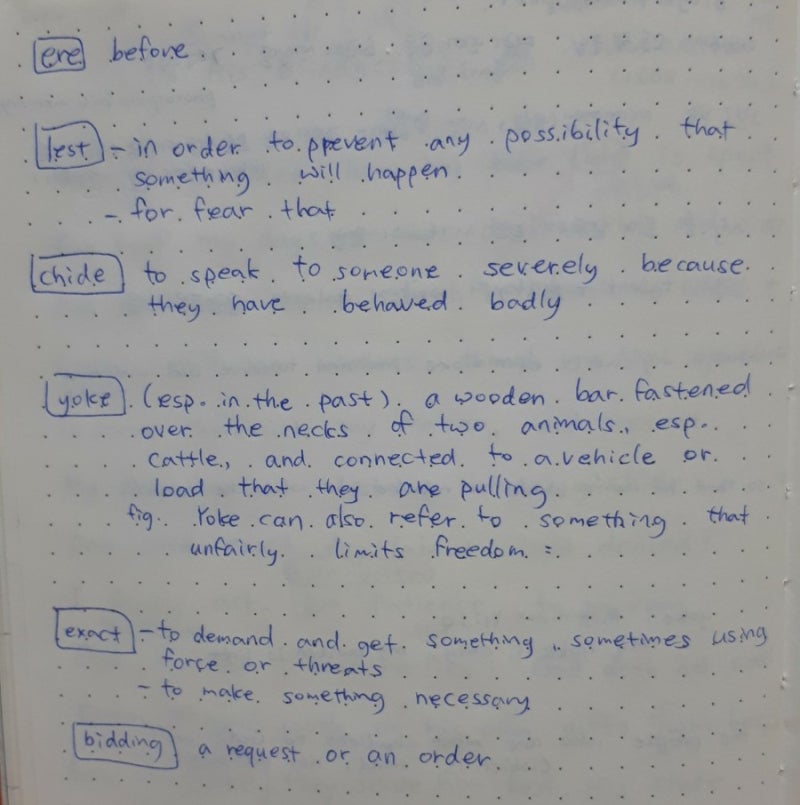 ere before
lest - in order to prevent any possibility that
something will happen.
- for fear that
chide to speak to someone severely because
they have behaved badly
yoke (esp. in the past) a wooden bar fastened
over the necks of two animals, esp.
cattle, and connected to a vehicle or
load that they are pulling.
fig. Yoke can also refer to something that
unfairly limits freedom :
exact - to demand and get something, sometimes using
force or threats
- to make something necessary
bidding a request or an order